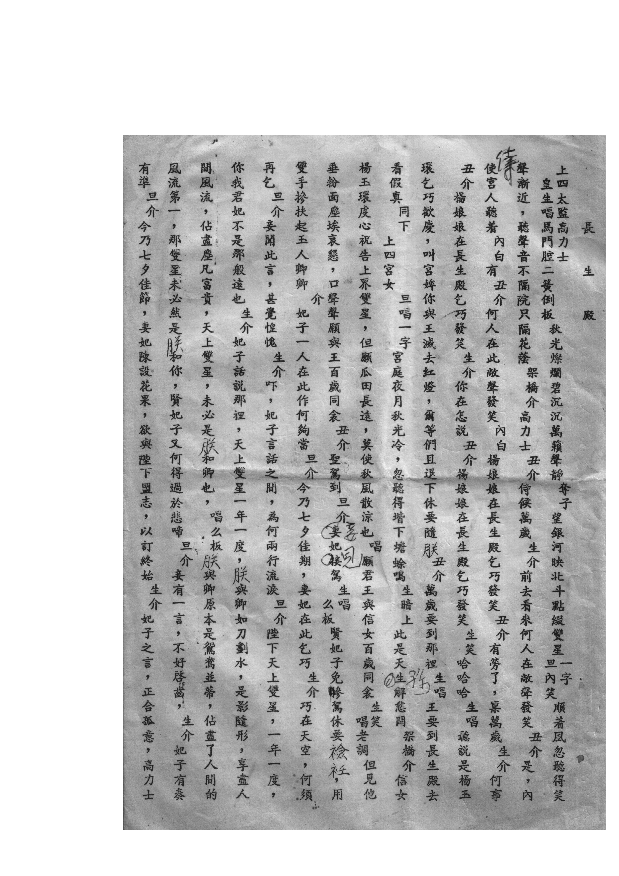 長生殿
上四太監高力士
皇生唱馬門腔二黃倒板 秋光燦爛碧沉沉萬籟聲靜 奪子 望銀河映北斗點綴雙星 一字 旦內笑 順着風忽聽得笑
聲漸近，聽聲音不隔院只隔花蔭 架橋介 高力士 丑介 侍候萬歲 生介 前去看來何人在敵聲發笑 丑介 是，內
使宮人聽着 內白 有 丑介 何人在此敵聲發笑 內白 楊娘娘在長生殿乞巧發笑 丑介 有勞了，稟萬歲 生介 何事
丑介 楊娘娘在長生殿乞巧發笑 生介 你在怎說 丑介 楊娘娘在長生殿乞巧發笑 生笑 哈哈哈 生唱 聽說是楊玉
環乞巧歡慶，叫宮娥你與王滅去紅燈，爾等們且退下休要隨朕 丑介 萬歲要到那裡 生唱 王要到長生殿去
看假真 同下 上四宮女 旦唱一字 宮庭夜月秋光冷，忽聽得堦下蟾蜍鳴 生暗上 此是天生解愁悶 架橋介 信女
楊玉環虔心祝告上界雙星，但願瓜田長遠，莫使秋風散涼也 唱 願君王與信女百歲同衾 生笑 唱老調 但見他
垂粉面塵埃哀懇，口聲聲願與王百歲同衾 丑介 聖駕到 旦介 妾妃接駕 生唱 么板 賢妃子免摻駕休要襝衽，用
雙手摻扶起玉人卿卿 介 妃子一人在此作何夠當 旦介 今乃七夕佳期，妾妃在此乞巧 生介 巧在天空，何須
再乞 旦介 妾聞此言，甚覺惶愧 生介 吓，妃子言話之間，為何兩行流淚 旦介 陛下天上雙星，一年一度，
你我君妃不是那般遠也 生介 妃子話說那裡，天上雙星一年一度，朕與卿如刀劃水，是影隨形，享盡人
間風流，佔盡塵凡富貴，天上雙星，未必是朕和卿也， 唱么板 朕與卿原本是鴛鴦並蒂，佔盡了人間的
風流第一，那雙星未必然是朕和你，賢妃子又何得過於悲啼 旦介 妾有一言，不好啓齒， 生介 妃子有奏
有準 旦介 今乃七夕佳節，妾妃陳設花果，欲與陛下盟志，以訂終始 生介 妃子之言，正合孤意，高力士